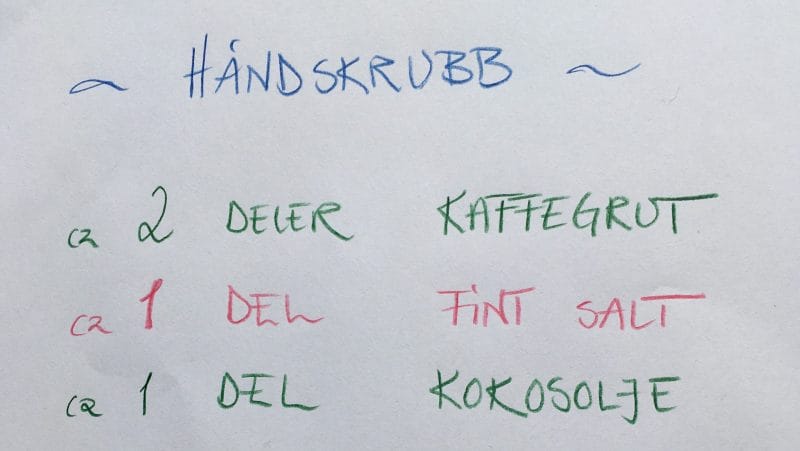 ~ HÅNDSKRUBB ~
ca 2 DELER KAFFEGRUT
ca 1 DEL FiNT SALT
ca 1 DEL KOKOSOLJE